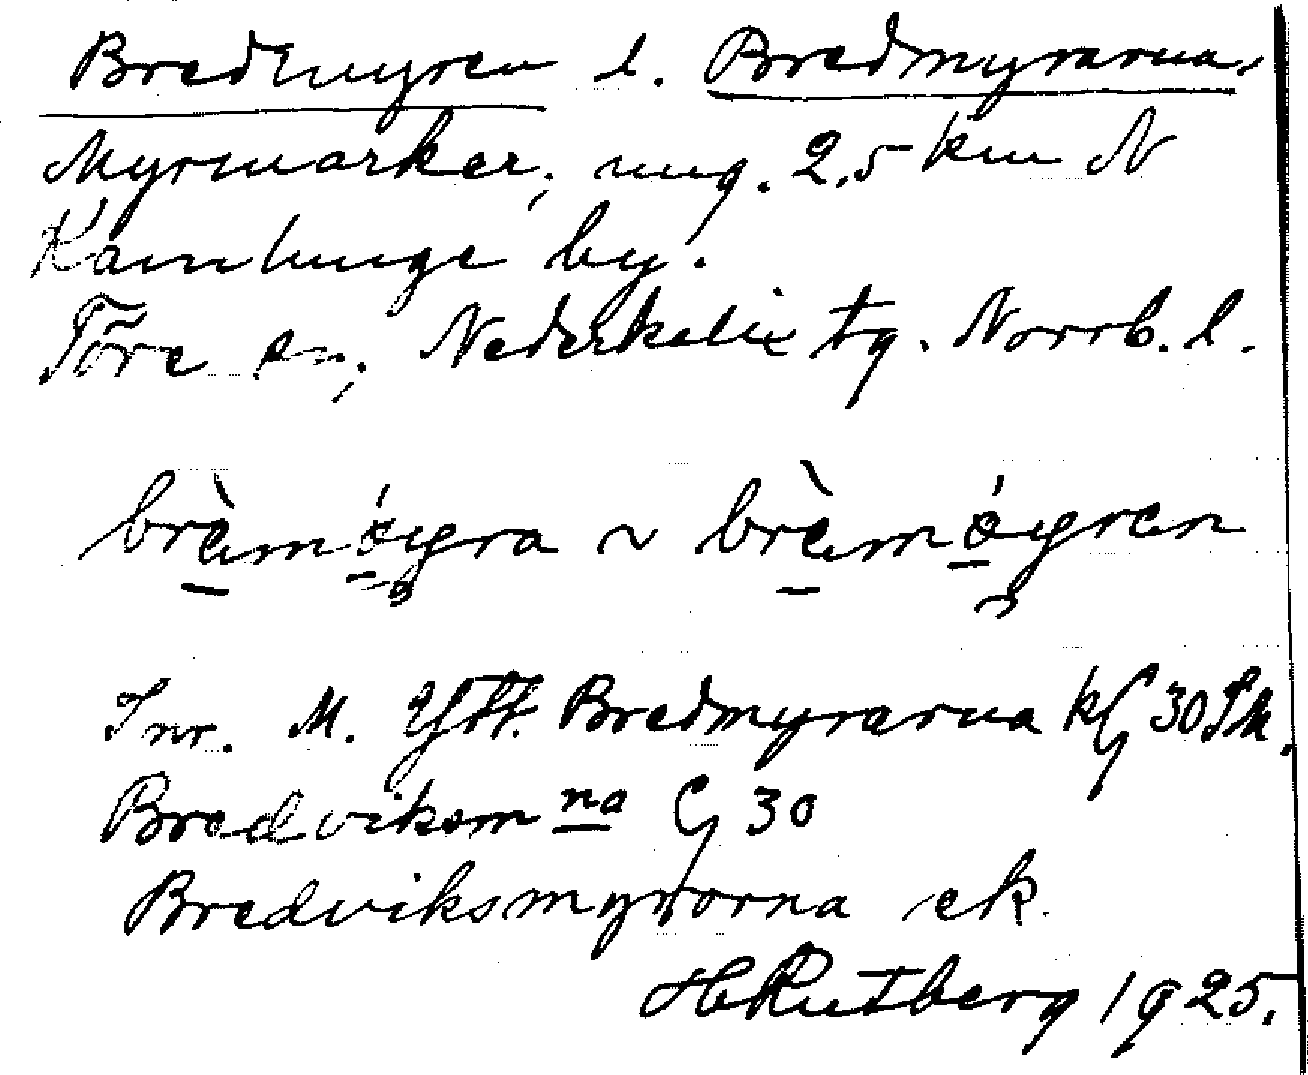 Bredmyren l. Bredmyrarna,
Myrmarker, ung. 2,5 km N
Kamlunge by.
Töre sn, Nederkalix tg. Norrb. l.
bràmýra ~ bràmýren
Inr. M. Ytt. Bredmyrarna kG 30
Bredviksm na G 30
Bredviksmyrorna ek.
H Rutberg 1925.